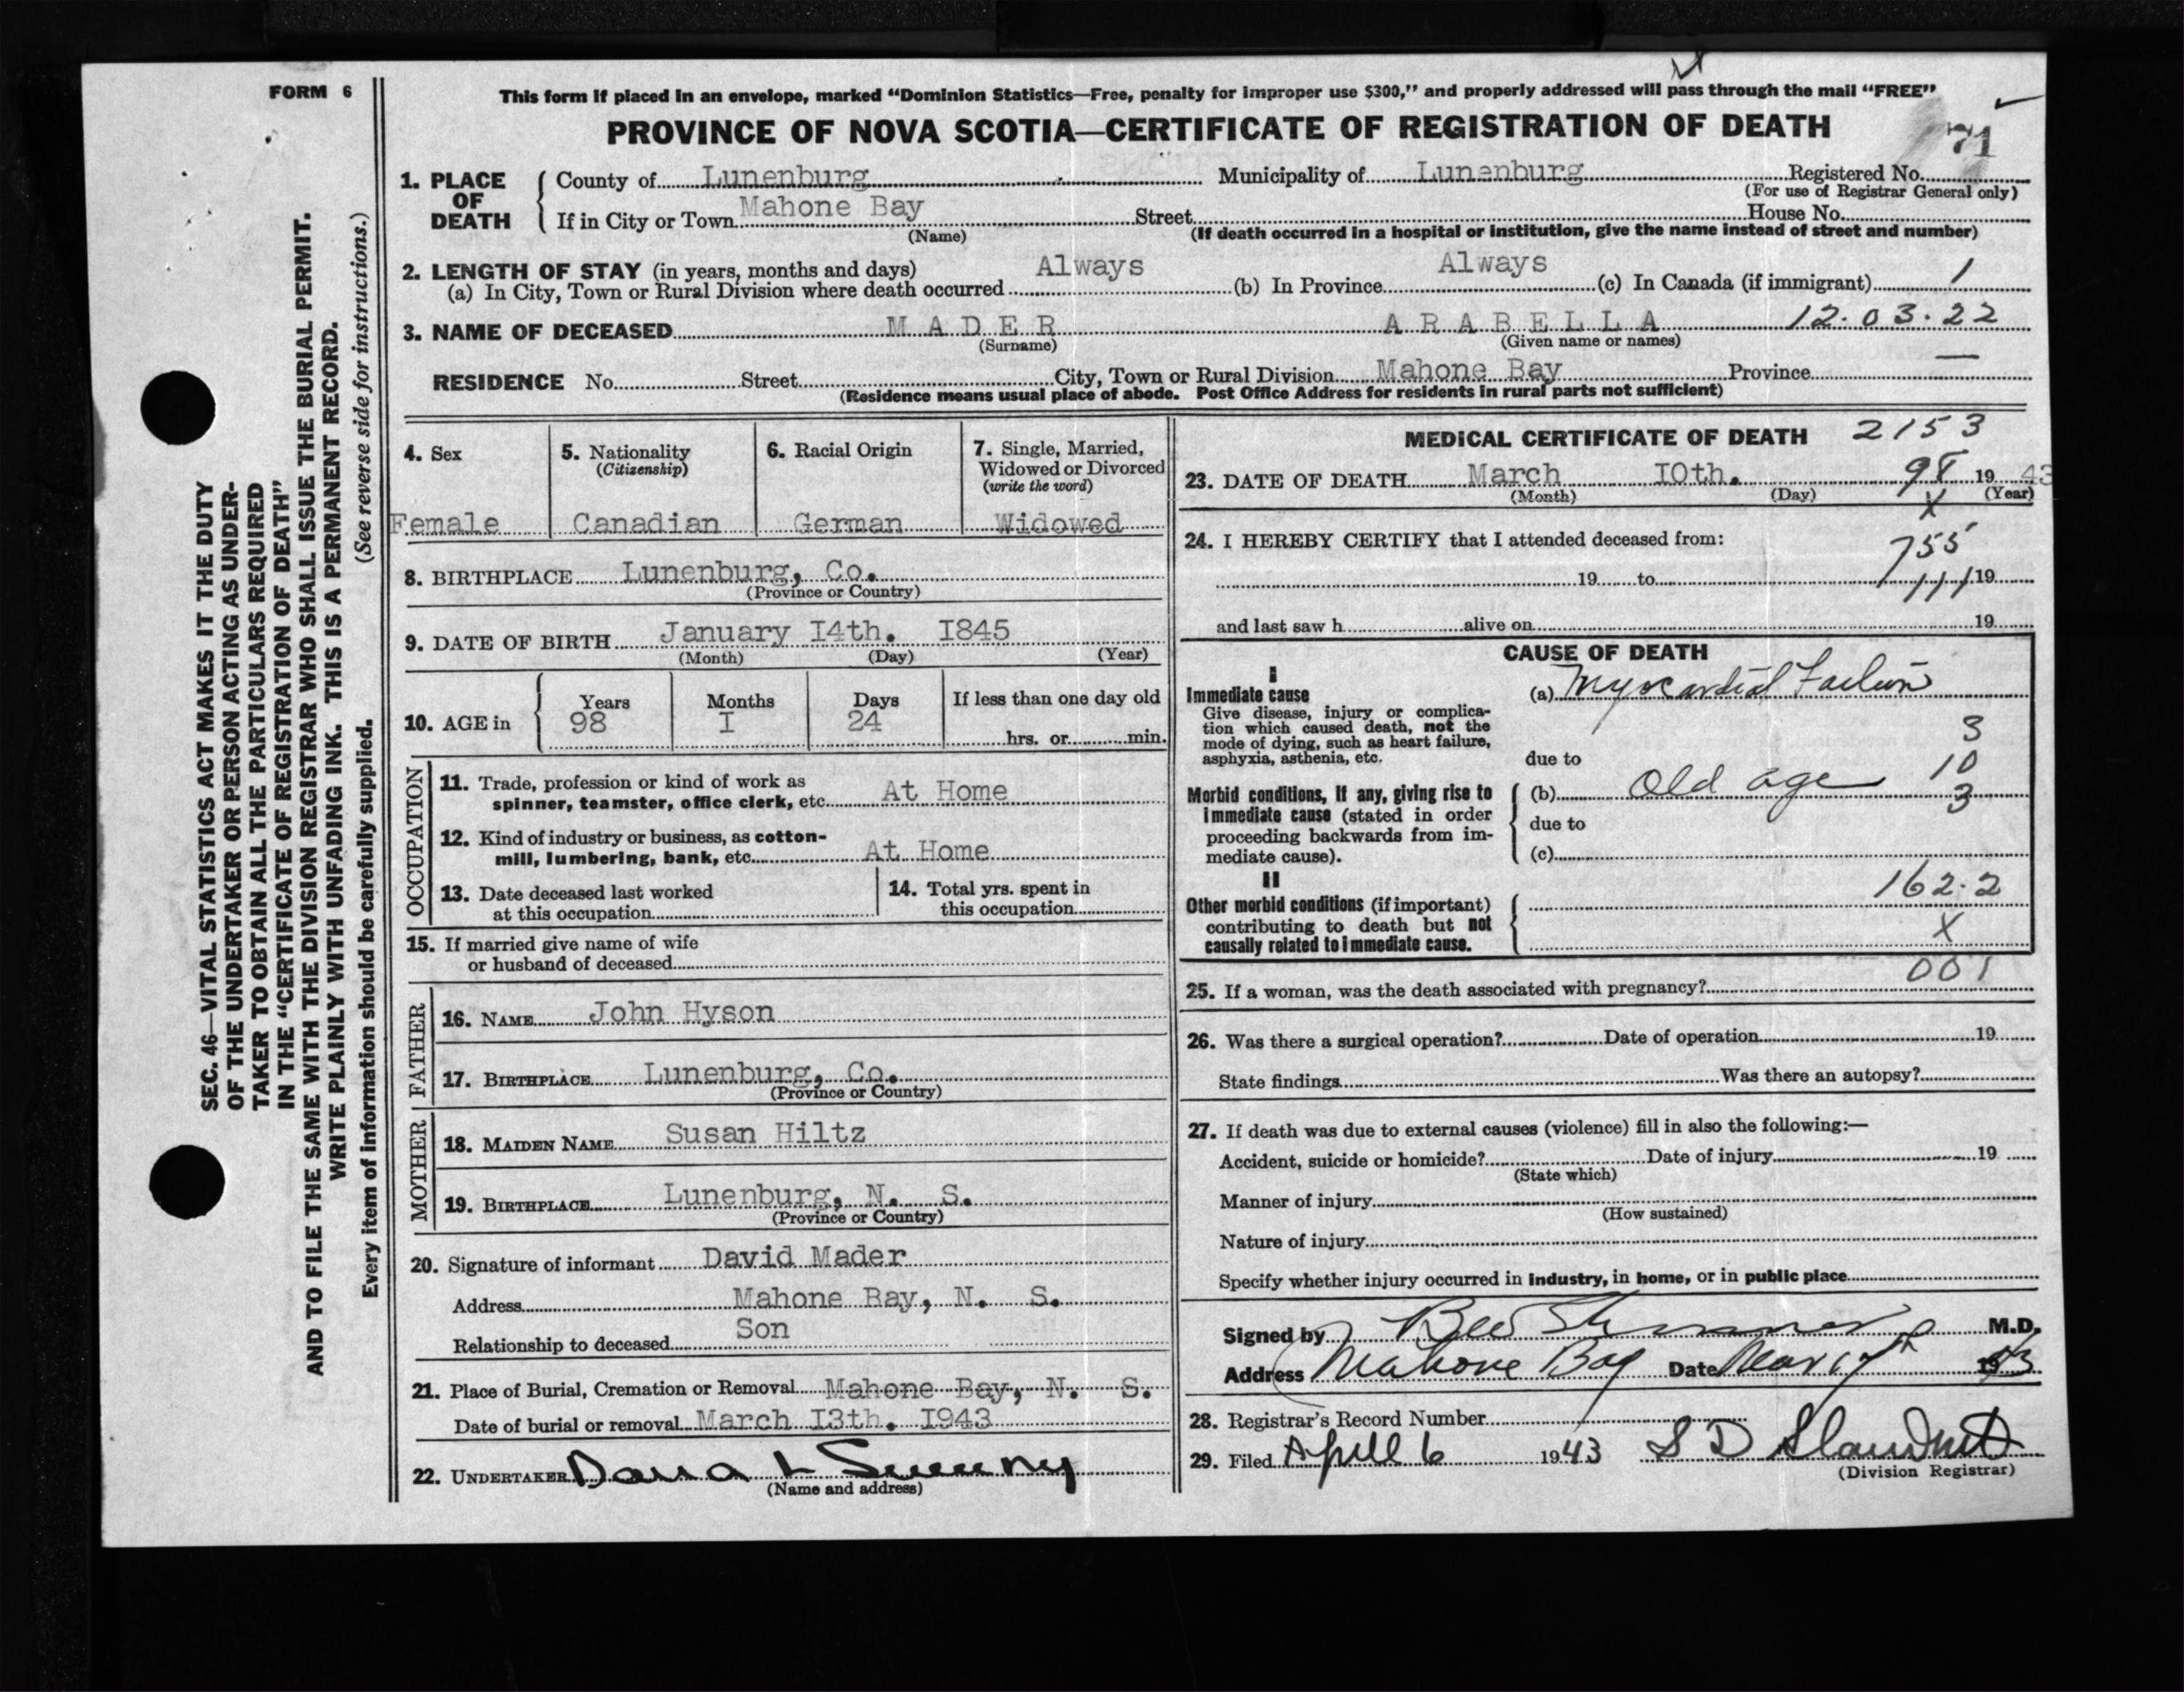 FORM 6
This form if placed in an envelope, marked "Dominion Statistics—Free, penalty for improper use $300," and properly addressed will pass through the mail "FREE"
PROVINCE OF NOVA SCOTIA—CERTIFICATE OF REGISTRATION OF DEATH
71
1. PLACE OF DEATH
County of Lunenburg Municipality of Lunenburg Registered No.
(For use of Registrar General only)
If in City or Town Mahone Bay Street House No.
(Name) (If death occurred in a hospital or institution, give the name instead of street and number)
2. LENGTH OF STAY (in years, months and days)
(a) In City, Town or Rural Division where death occurred Always (b) In Province Always (c) In Canada (if immigrant) 1
3. NAME OF DECEASED MADER ARABELLA 12.03.22
(Surname) (Given name or names)
RESIDENCE No. Street City, Town or Rural Division Mahone Bay Province —
(Residence means usual place of abode. Post Office Address for residents in rural parts not sufficient)
4. Sex
Female
5. Nationality
(Citizenship)
Canadian
6. Racial Origin
German
7. Single, Married,
Widowed or Divorced
(write the word)
Widowed
8. BIRTHPLACE Lunenburg, Co.
(Province or Country)
9. DATE OF BIRTH January I4th. I845
(Month) (Day) (Year)
10. AGE in
Years Months Days If less than one day old
98 I 24 hrs. or min.
OCCUPATION
11. Trade, profession or kind of work as
spinner, teamster, office clerk, etc. At Home
12. Kind of industry or business, as cotton-
mill, lumbering, bank, etc. At Home
13. Date deceased last worked
at this occupation
14. Total yrs. spent in
this occupation
15. If married give name of wife
or husband of deceased
FATHER
16. NAME John Hyson
17. BIRTHPLACE Lunenburg, Co.
(Province or Country)
MOTHER
18. MAIDEN NAME Susan Hiltz
19. BIRTHPLACE Lunenburg, N. S.
(Province or Country)
20. Signature of informant David Mader
Address Mahone Bay, N. S.
Relationship to deceased Son
21. Place of Burial, Cremation or Removal Mahone Bay, N. S.
Date of burial or removal March I3th. I943
22. UNDERTAKER Dana L Sweeny
(Name and address)
MEDICAL CERTIFICATE OF DEATH 2153
23. DATE OF DEATH March I0th. 98 1943
(Month) (Day) (Year)
X
24. I HEREBY CERTIFY that I attended deceased from:
755
19 to 19
111
and last saw h alive on 19
CAUSE OF DEATH
I
Immediate cause (a) Myocardial Failure
Give disease, injury or complica-
tion which caused death, not the
mode of dying, such as heart failure,
asphyxia, asthenia, etc.
3
due to
10
Morbid conditions, if any, giving rise to
immediate cause (stated in order
proceeding backwards from im-
mediate cause).
(b) Old age
3
due to
(c)
II
162.2
Other morbid conditions (if important)
contributing to death but not
causally related to immediate cause.
X
001
25. If a woman, was the death associated with pregnancy?
26. Was there a surgical operation? Date of operation 19
State findings Was there an autopsy?
27. If death was due to external causes (violence) fill in also the following:—
Accident, suicide or homicide? Date of injury 19
(State which)
Manner of injury
(How sustained)
Nature of injury
Specify whether injury occurred in industry, in home, or in public place
Signed by M.D.
Address Mahone Bay Date 1943
28. Registrar's Record Number
29. Filed April 6 1943 S D
(Division Registrar)
SEC. 46—VITAL STATISTICS ACT MAKES IT THE DUTY
OF THE UNDERTAKER OR PERSON ACTING AS UNDER-
TAKER TO OBTAIN ALL THE PARTICULARS REQUIRED
IN THE "CERTIFICATE OF REGISTRATION OF DEATH"
AND TO FILE THE SAME WITH THE DIVISION REGISTRAR WHO SHALL ISSUE THE BURIAL PERMIT.
WRITE PLAINLY WITH UNFADING INK. THIS IS A PERMANENT RECORD.
Every item of information should be carefully supplied. (See reverse side for instructions.)